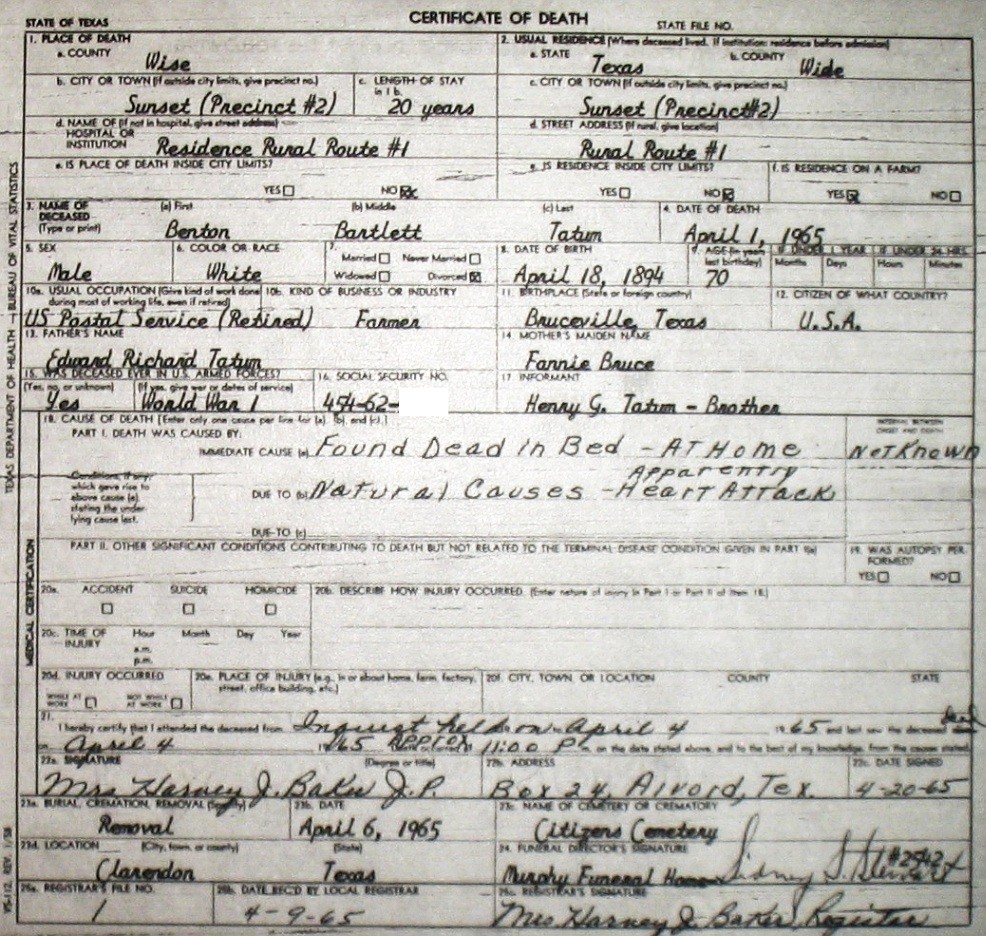 STATE OF TEXAS
CERTIFICATE OF DEATH
STATE FILE NO.
1. PLACE OF DEATH
a. COUNTY
Wise
2. USUAL RESIDENCE (Where deceased lived. If institution: residence before admission)
a. STATE
Texas
b. COUNTY
Wide
b. CITY OR TOWN (If outside city limits, give precinct no.)
Sunset (Precinct #2)
c. LENGTH OF STAY in 1 b.
20 years
c. CITY OR TOWN (If outside city limits, give precinct no.)
Sunset (Precinct #2)
d. NAME OF (If not in hospital, give street address)
HOSPITAL OR
INSTITUTION
Residence Rural Route #1
d. STREET ADDRESS (If rural, give location)
Rural Route #1
e. IS PLACE OF DEATH INSIDE CITY LIMITS?
YES NO
e. IS RESIDENCE INSIDE CITY LIMITS?
YES NO
f. IS RESIDENCE ON A FARM?
YES NO
3. NAME OF DECEASED
(Type or print)
(a) First
Benton
(b) Middle
Bartlett
(c) Last
Tatum
4. DATE OF DEATH
April 1, 1965
5. SEX
Male
6. COLOR OR RACE
White
7.
Married Never Married
Widowed Divorced
8. DATE OF BIRTH
April 18, 1894
9. AGE (In years last birthday)
70
IF UNDER 1 YEAR
Months Days
IF UNDER 24 HRS.
Hours Minutes
10a. USUAL OCCUPATION (Give kind of work done during most of working life, even if retired)
US Postal Service (Retired)
10b. KIND OF BUSINESS OR INDUSTRY
Farmer
11. BIRTHPLACE (State or foreign country)
Bruceville, Texas
12. CITIZEN OF WHAT COUNTRY?
U.S.A.
13. FATHER'S NAME
Edward Richard Tatum
14. MOTHER'S MAIDEN NAME
Fannie Bruce
15. WAS DECEASED EVER IN U.S. ARMED FORCES?
(Yes, no, or unknown)
Yes
(If yes, give war or dates of service)
World War I
16. SOCIAL SECURITY NO.
454-62-
17. INFORMANT
Henry G. Tatum - Brother
18. CAUSE OF DEATH [Enter only one cause per line for (a), (b), and (c).]
PART I. DEATH WAS CAUSED BY:
IMMEDIATE CAUSE (a) Found Dead in Bed - AT Home
INTERVAL BETWEEN ONSET AND DEATH
Not Known
Conditions, if any, which gave rise to above cause (a), stating the underlying cause last.
Apparently
DUE TO (b) Natural Causes - Heart Attack
DUE TO (c)
PART II. OTHER SIGNIFICANT CONDITIONS CONTRIBUTING TO DEATH BUT NOT RELATED TO THE TERMINAL DISEASE CONDITION GIVEN IN PART I(a)
19. WAS AUTOPSY PERFORMED?
YES NO
20a. ACCIDENT SUICIDE HOMICIDE
20b. DESCRIBE HOW INJURY OCCURRED. (Enter nature of injury in Part I or Part II of item 18.)
20c. TIME OF INJURY
Hour Month Day Year
a.m.
p.m.
20d. INJURY OCCURRED
WHILE AT WORK
NOT WHILE AT WORK
20e. PLACE OF INJURY (e.g. in or about home, farm, factory, street, office building, etc.)
20f. CITY, TOWN, OR LOCATION COUNTY STATE
21.
I hereby certify that I attended the deceased from Inquest held on April 4 1965 and last saw the deceased dead
on April 4 1965 Approx 11:00 P. m. on the date stated above, and to the best of my knowledge, from the causes stated.
22a. SIGNATURE (Degree or title)
Mrs Harney J. Baker J.P.
22b. ADDRESS
Box 24, Alvord, Tex.
22c. DATE SIGNED
4-20-65
23a. BURIAL, CREMATION, REMOVAL (Specify)
Removal
23b. DATE
April 6, 1965
23c. NAME OF CEMETERY OR CREMATORY
Citizens Cemetery
23d. LOCATION (City, town, or county) (State)
Clarendon Texas
24. FUNERAL DIRECTOR'S SIGNATURE
Murphy Funeral Home Sidney S.
25a. REGISTRAR'S FILE NO.
1
25b. DATE REC'D BY LOCAL REGISTRAR
4-9-65
25c. REGISTRAR'S SIGNATURE
Mrs Harney J. Baker, Register
TEXAS DEPARTMENT OF HEALTH — BUREAU OF VITAL STATISTICS
MEDICAL CERTIFICATION
VS-112 REV. 1/58